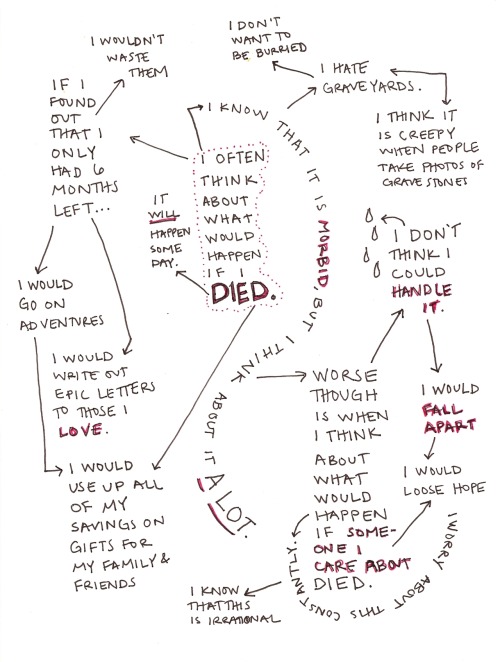 I WOULDN'T
WASTE
THEM
I DON'T
WANT TO
BE BURRIED
I HATE
GRAVEYARDS.
I THINK IT
IS CREEPY
WHEN PEOPLE
TAKE PHOTOS OF
GRAVESTONES
IF I
FOUND
OUT
THAT I
ONLY
HAD 6
MONTHS
LEFT...
I OFTEN
THINK
ABOUT
WHAT
WOULD
HAPPEN
IF I
DIED.
I KNOW THAT IT IS MORBID, BUT I THINK ABOUT IT A LOT.
IT
WILL
HAPPEN
SOME
DAY.
I WOULD
GO ON
ADVENTURES
I WOULD
WRITE OUT
EPIC LETTERS
TO THOSE I
LOVE.
I WOULD
USE UP ALL
OF MY
SAVINGS ON
GIFTS FOR
MY FAMILY &
FRIENDS
WORSE
THOUGH
IS WHEN
I THINK
ABOUT
WHAT
WOULD
HAPPEN
IF SOME-
ONE I
CARE ABOUT
DIED.
I DON'T
THINK I
COULD
HANDLE
IT.
I WOULD
FALL
APART
I WOULD
LOOSE HOPE
I WORRY ABOUT THIS CONSTANTLY.
I KNOW
THAT THIS
IS IRRATIONAL